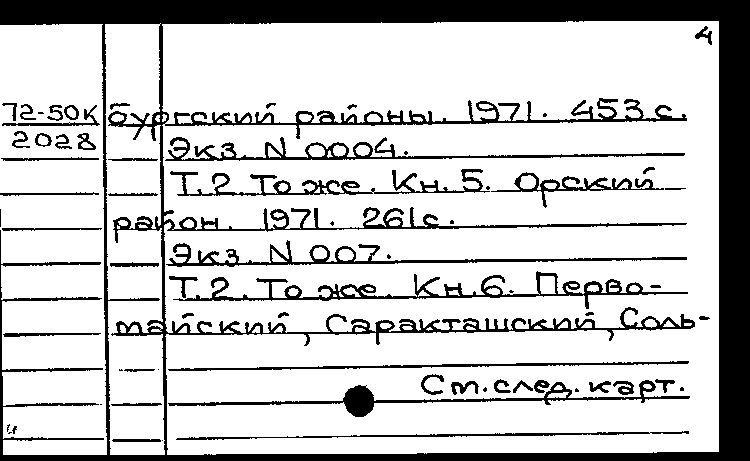 4
72-50К бургский районы. 1971. 453 с.
2028 Экз. N 0004.
Т.2. То же. Кн. 5. Орский
район. 1971. 261 с.
Экз. N 007.
Т.2. То же. Кн.6. Перво-
майский, Саракташский, Соль-
См. след. карт.